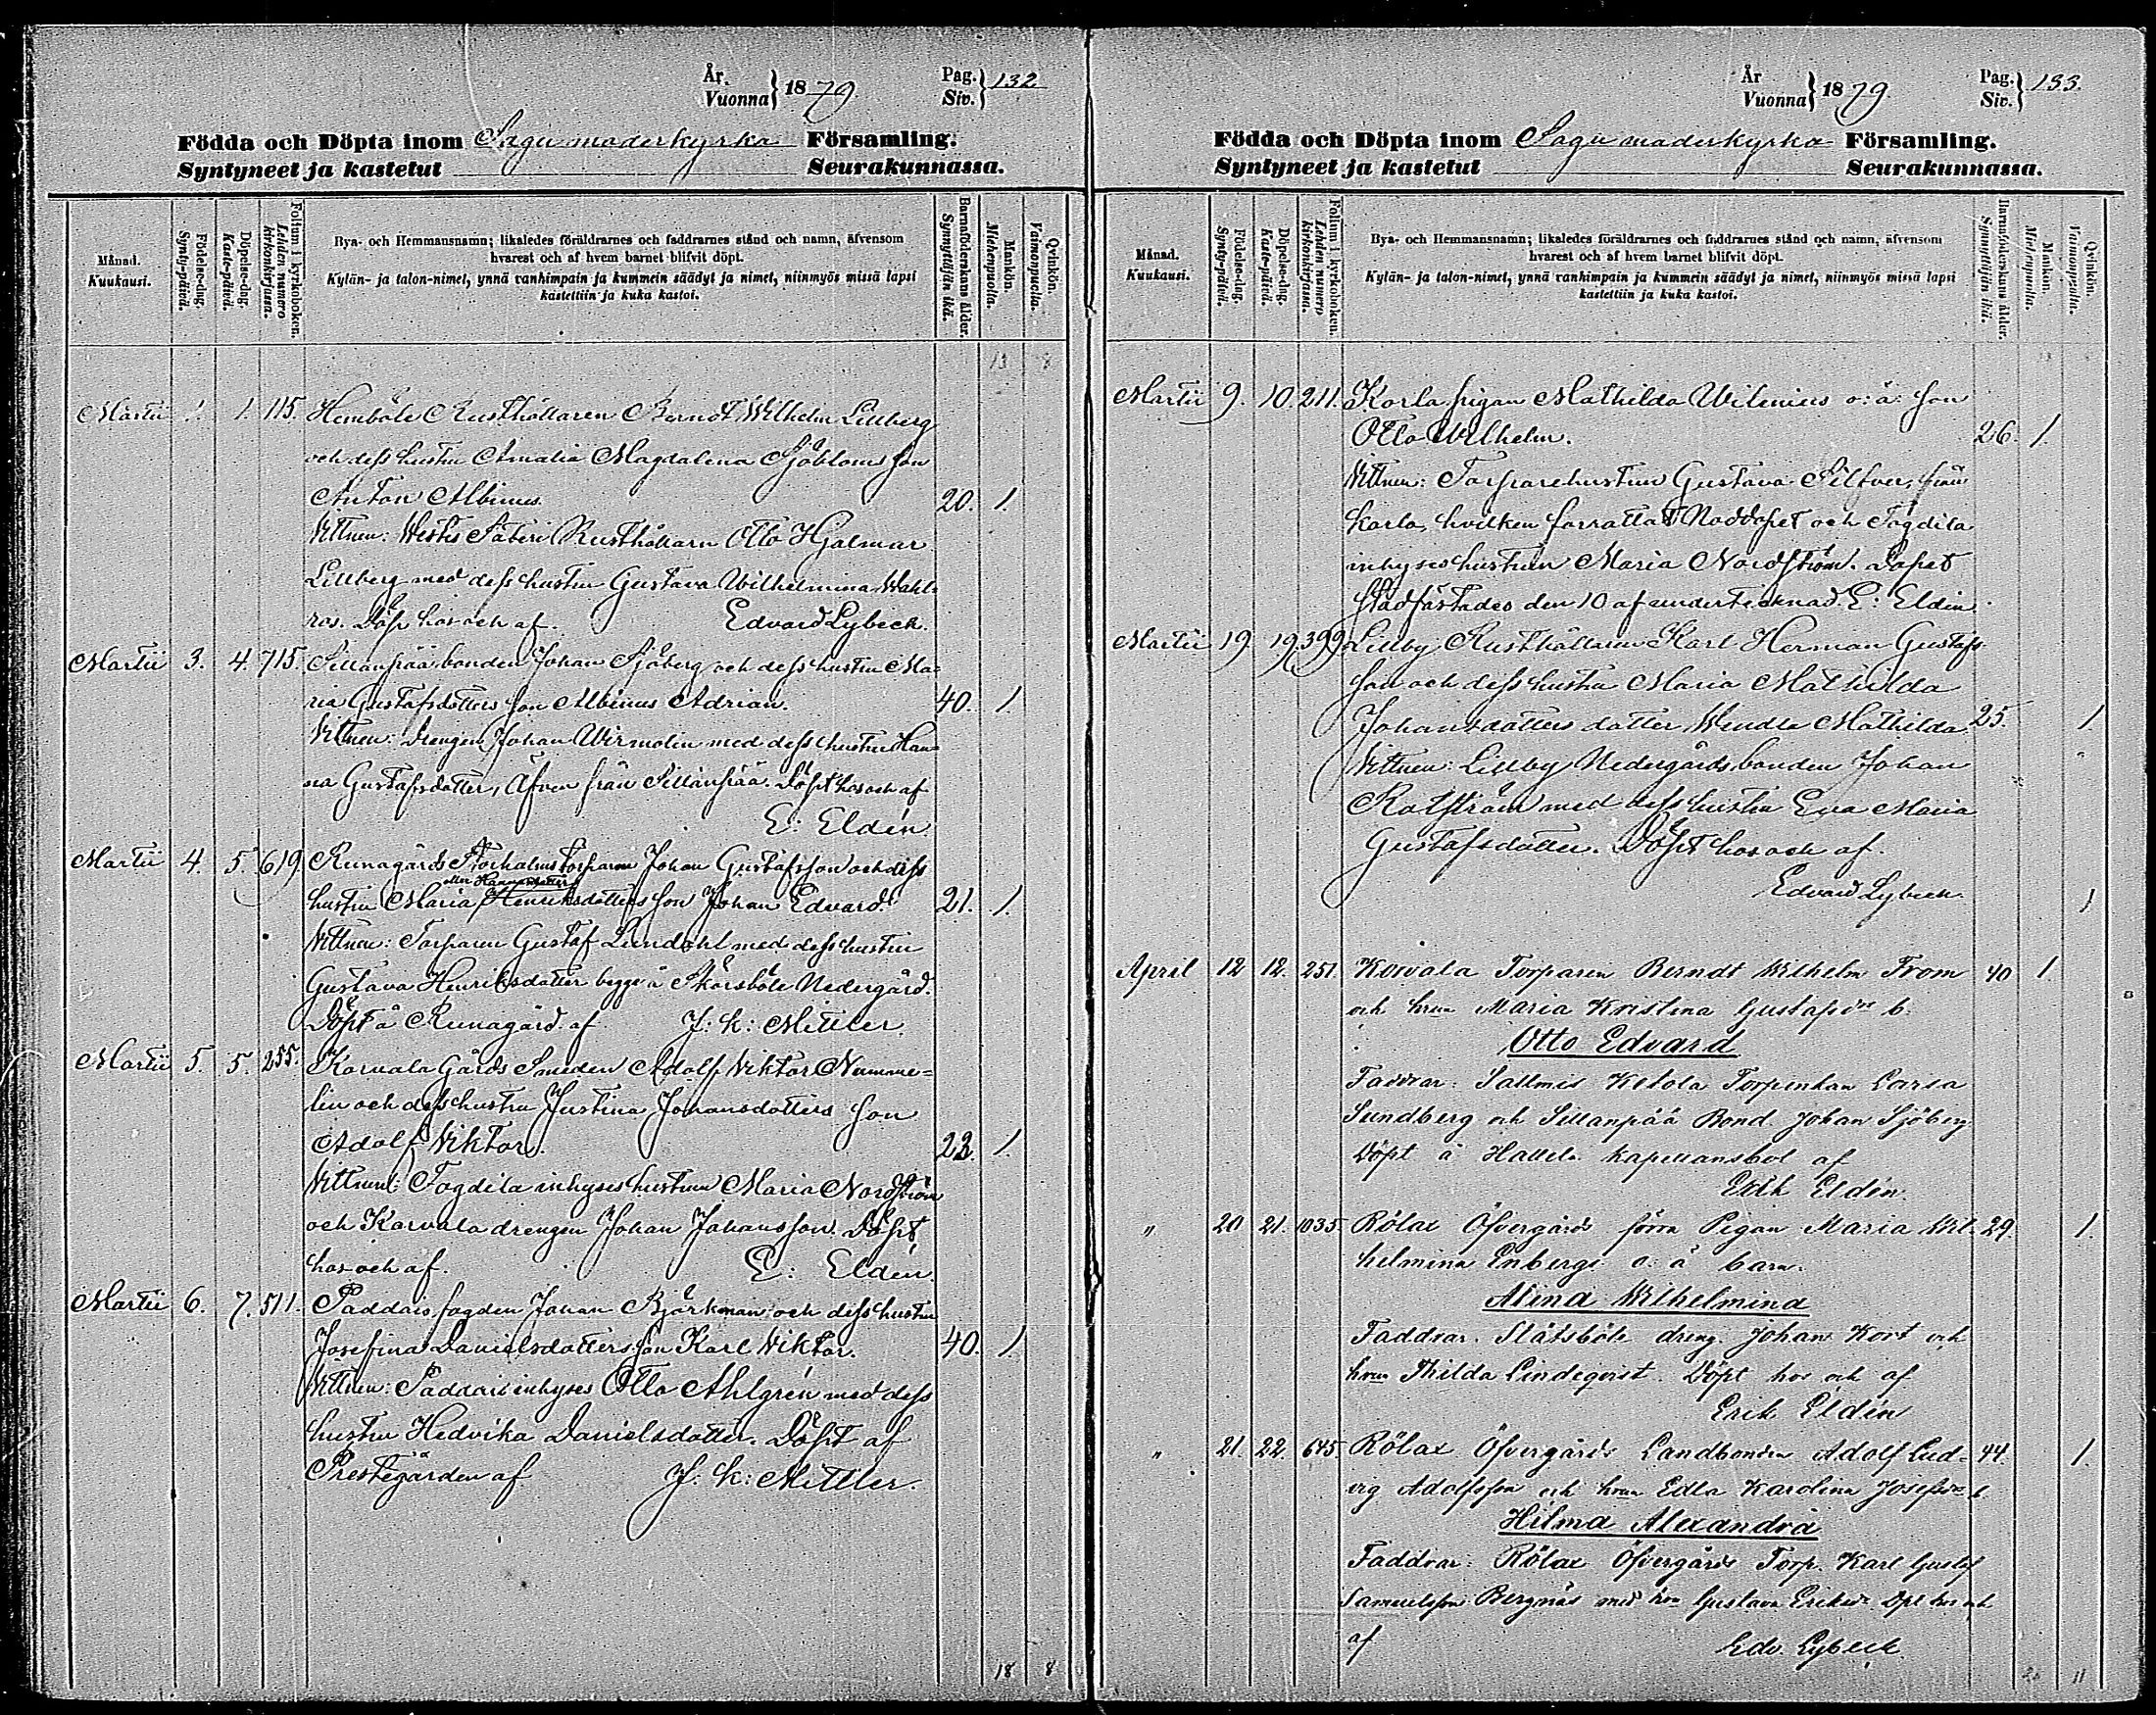 År.
Vuonna } 1879. Pag. Siv. } 132
Födda och Döpta inom Sagu moderkyrka Församling.
Syntyneet ja kastetut Seurakunnassa.
Månad. Kuukausi.
Födelse-dag. Synty-päivä.
Döpelse-dag. Kaste-päivä.
Folium i kyrkoboken. Lehden numero kirkonkirjassa.
Bya- och Hemmansnamn; likaledes föräldrarnes och faddrarnes stånd och namn, äfvensom
hvarest och af hvem barnet blifvit döpt.
Kylän- ja talon-nimet, ynnä vanhimpain ja kummein säädyt ja nimet, niinmyös missä lapsi
kastettiin ja kuka kastoi.
Barnföderskans ålder. Synnyttäjän ikä.
Mankön. Miehenpuolia.
Qvinkön. Vaimonpuolia.
13 8
Martii 1. 1. 115. Hemböle Rusthållaren Berndt Wilhelm Lillberg
och dess hustru Amalia Magdalena Sjöbloms son
Anton Albinus. 20. 1.
Vittnen: Westis Säteri Rusthållarn Otto Hjalmar
Lillberg med dess hustru Gustava Wilhelmina Wahl-
ros. Döpt hos och af. Edvard Lybeck.
Martii 3. 4. 715. Sillanpää bonden Johan Sjöberg och dess hustru Ma-
ria Gustafsdotters son Albinus Adrian. 40. 1
Vittnen: Drengen Johan Wirmolin med dess hustru Han-
na Gustafsdotter, äfven från Sillanpää. Döpt hos och af
E: Eldén.
Martii 4. 5. 619. Runagårds Storholms Torparen Johan Gustafsson och dess
hustru Maria Henriksdotters son Johan Edvard. 21. 1.
Vittnen: Torparen Gustaf Lundahl med dess hustru
Gustava Henriksdotter begge å Skärsböle Nedergård.
Döpt å Runagård af J: K: Mittler
Martii 5. 5. 255. Karvala Gårds Smeden Adolf Viktor Numme-
lin och dess hustru Justina Johansdotters son
Adolf Viktor. 23. 1.
Vittnen: Fogdila inhyses hustrun Maria Nordström
och Karvala drengen Johan Johansson. Döpt
hos och af. E: Eldén.
Martii 6. 7. 511. Paddais fogden Johan Björkman och dess hustru
Josefina Danielsdotters son Karl Viktor. 40. 1.
Vittnen: Paddais inhyses Otto Ahlgrén med dess
hustru Hedvika Danielsdotter. Döpt af
Prestegården af J: K: Mittler.
18 8
År
Vuonna } 1879. Pag. Siv. } 133.
Födda och Döpta inom Sagu moderkyrka Församling.
Syntyneet ja kastetut Seurakunnassa.
Månad. Kuukausi.
Födelse-dag. Synty-päivä.
Döpelse-dag. Kaste-päivä.
Folium i kyrkoboken. Lehden numero kirkonkirjassa.
Bya- och Hemmansnamn; likaledes föräldrarnes och faddrarnes stånd och namn, äfvensom
hvarest och af hvem barnet blifvit döpt.
Kylän- ja talon-nimet, ynnä vanhimpain ja kummein säädyt ja nimet, niinmyös missä lapsi
kastettiin ja kuka kastoi.
Barnföderskans ålder. Synnyttäjän ikä.
Mankön. Miehenpuolia.
Qvinkön. Vaimonpuolia.
Martii 9. 10. 211. Karla pigan Mathilda Wilenius o: ä: son
Otto Wilhelm. 26. 1.
Vittnen: Torparehustrun Gustava Silfver, från
Karla, hvilken förrättat Noddopet och Fogdila
inhyseshustrun Maria Nordström. Dopet
stadfästades den 10 af undertecknad. E: Eldén
Martii 19. 19. 399. Lillby Rusthållaren Karl Herman Gustafs-
son och dess hustru Maria Mathilda
Johansdotters dotter Wendla Mathilda. 25. 1.
Vittnen: Lillby Nedergårds bonden Johan
Rotström med dess hustru Eva Maria
Gustafsdotter. Döpt hos och af.
Edvard Lybeck.
1
April 12 12. 251. Korvala Torparen Berndt Wilhelm From 40 1.
och hrun Maria Kristina Gustafsdr b.
Otto Edvard
Faddrar: Sallmis Ketola Torpenkan Carsa
Sundberg och Sillanpää Bond. Johan Sjöberg
Döpt å Hallela Kapellansbol af
Erik Eldén.
" 20 21. 1035. Rölax Öfvergårds förra Pigan Maria Wil- 29. 1.
helmina Enbergs o: ä barn.
Alina Wilhelmina
Faddrar. Slätsböle dreng. Johan Kort och
hrun Thilda Lindeqvist. Döpt hos och af
Erik Eldén
" 21. 22. 645. Rölax Öfvergårds Landbonden Adolf Lud- 44. 1.
vig Adolfsson och hrun Edla Karolina Josefsdr b.
Hilma Alexandra
Faddrar: Rölax Öfvergårds Torp. Karl Gustaf
Samuelsson Bergnäs med hru Gustava Eriksdr Döpt hos och
af Edv. Lybeck.
11